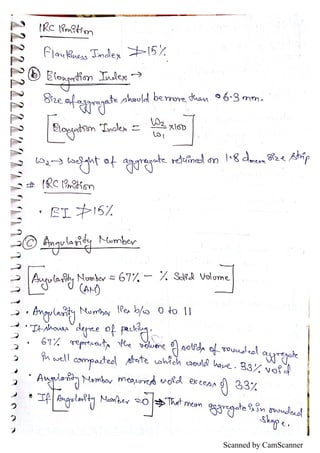 IRC limition
Flakiness Index ≯15%
ⓑ Elongation Index →
Size of aggregate should be more than 6.3 mm.
Elongation Index = W₂/W₁ x100
W₂ → weight of aggregate retained on 1.8 dmean size strip
⇒ IRC limition
• EI ≯15%
ⓒ Angularity Number
Angularity Number = 67% - % Solid Volume
(AN)
• Angularity Number lies b/w 0 to 11
• It shows degree of packing.
• 67% represents the volume of solids of rounded aggregate
in well compacted state which would have 33% void
• Angularity Number measures void excess of 33%
• If Angularity Number =0 ⇒ That mean aggregate is in rounded
shape.
Scanned by CamScanner